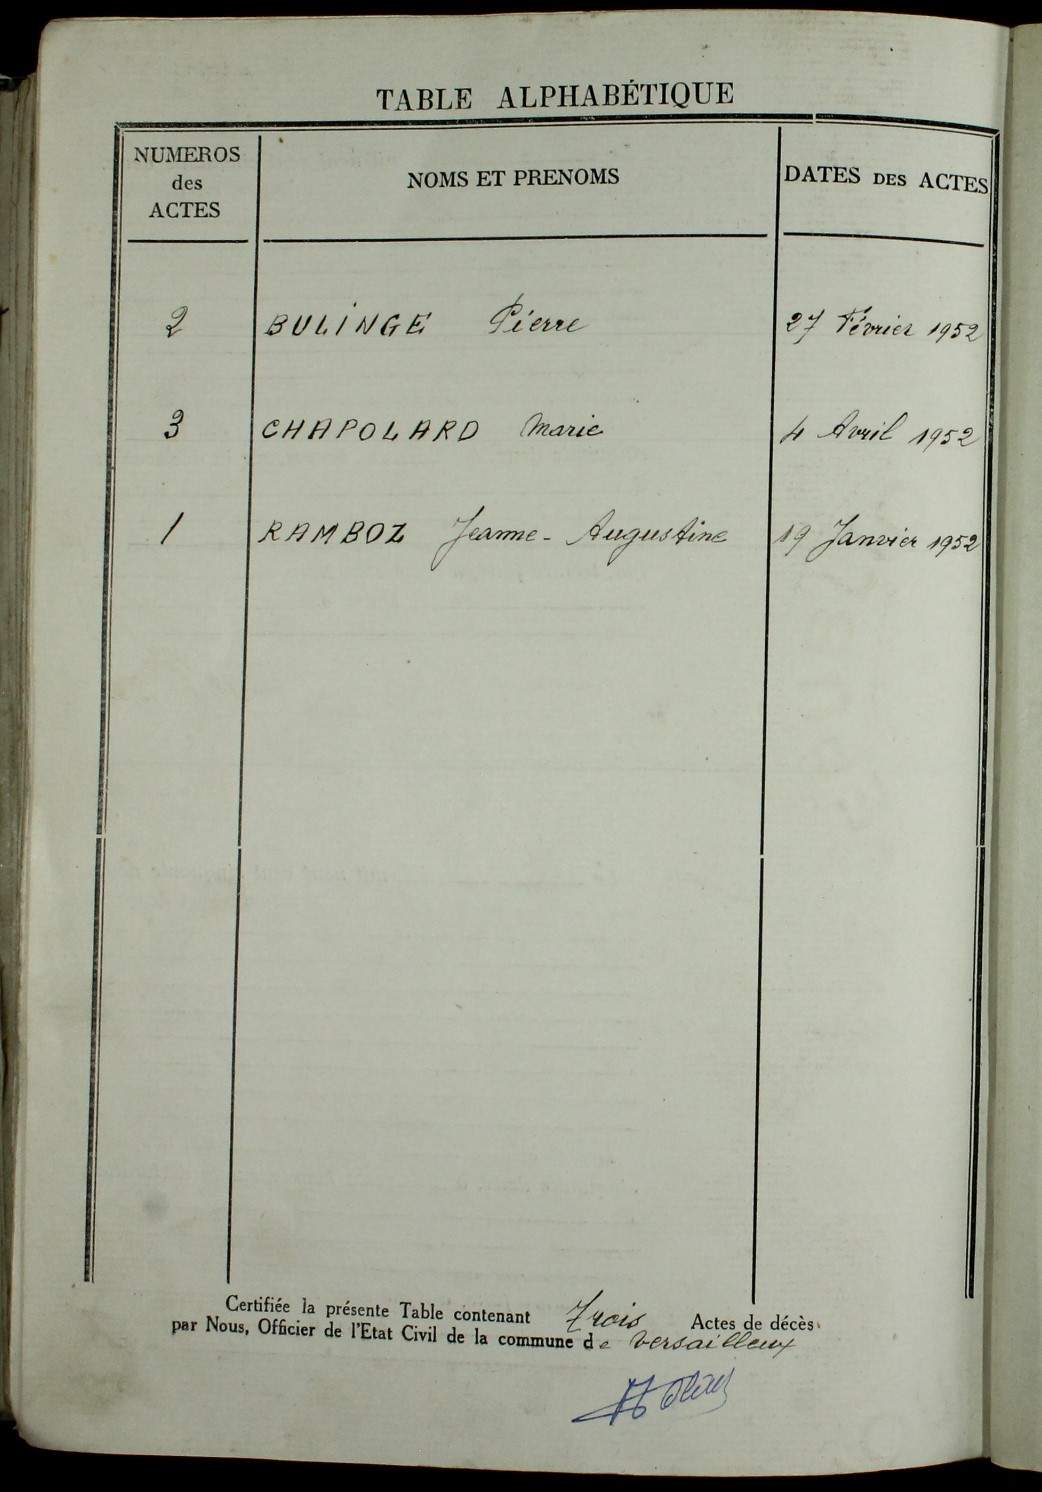 TABLE ALPHABÉTIQUE
NUMEROS
des
ACTES
NOMS ET PRENOMS
DATES DES ACTES
2 BULINGE Pierre 27 Février 1952
3 CHAPOLARD Marie 4 Avril 1952
1 RAMBOZ Jeanne-Augustine 19 Janvier 1952
Certifiée la présente Table contenant Trois Actes de décès
par Nous, Officier de l'Etat Civil de la commune de Versailleux